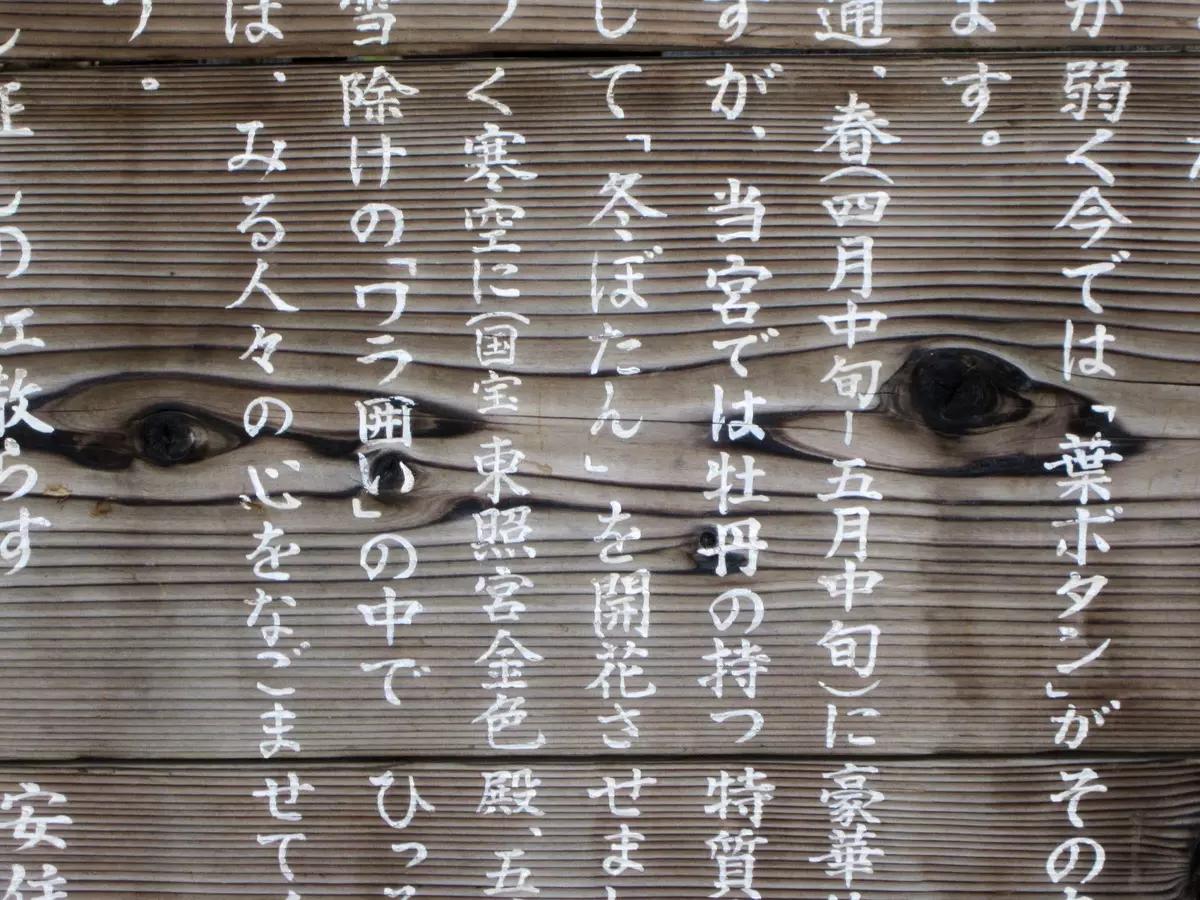 が弱く今では「葉ボタン」がその
ます。
通、春(四月中旬ー五月中旬)に豪華
すが、当宮では牡丹の持つ特質
して「冬ぼたん」を開花させまし
く寒空に(国宝 東照宮金色殿、五
雪除けの「ワラ囲い」の中でひっ
は、みる人々の心をなごませて
う。
散らす
安住